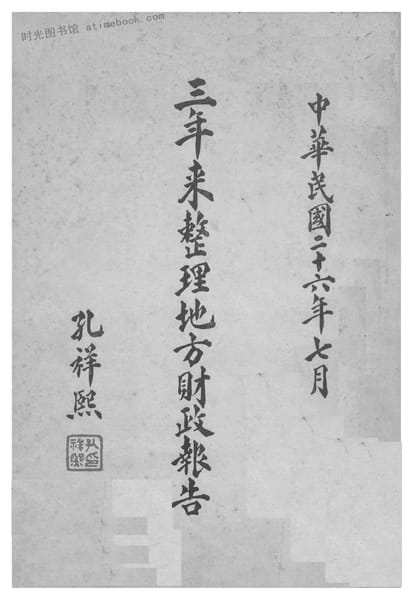 时光图书馆 atimebook.com
中華民國二十六年七月
三年來整理地方財政報告
孔祥熙
孔祥熙印